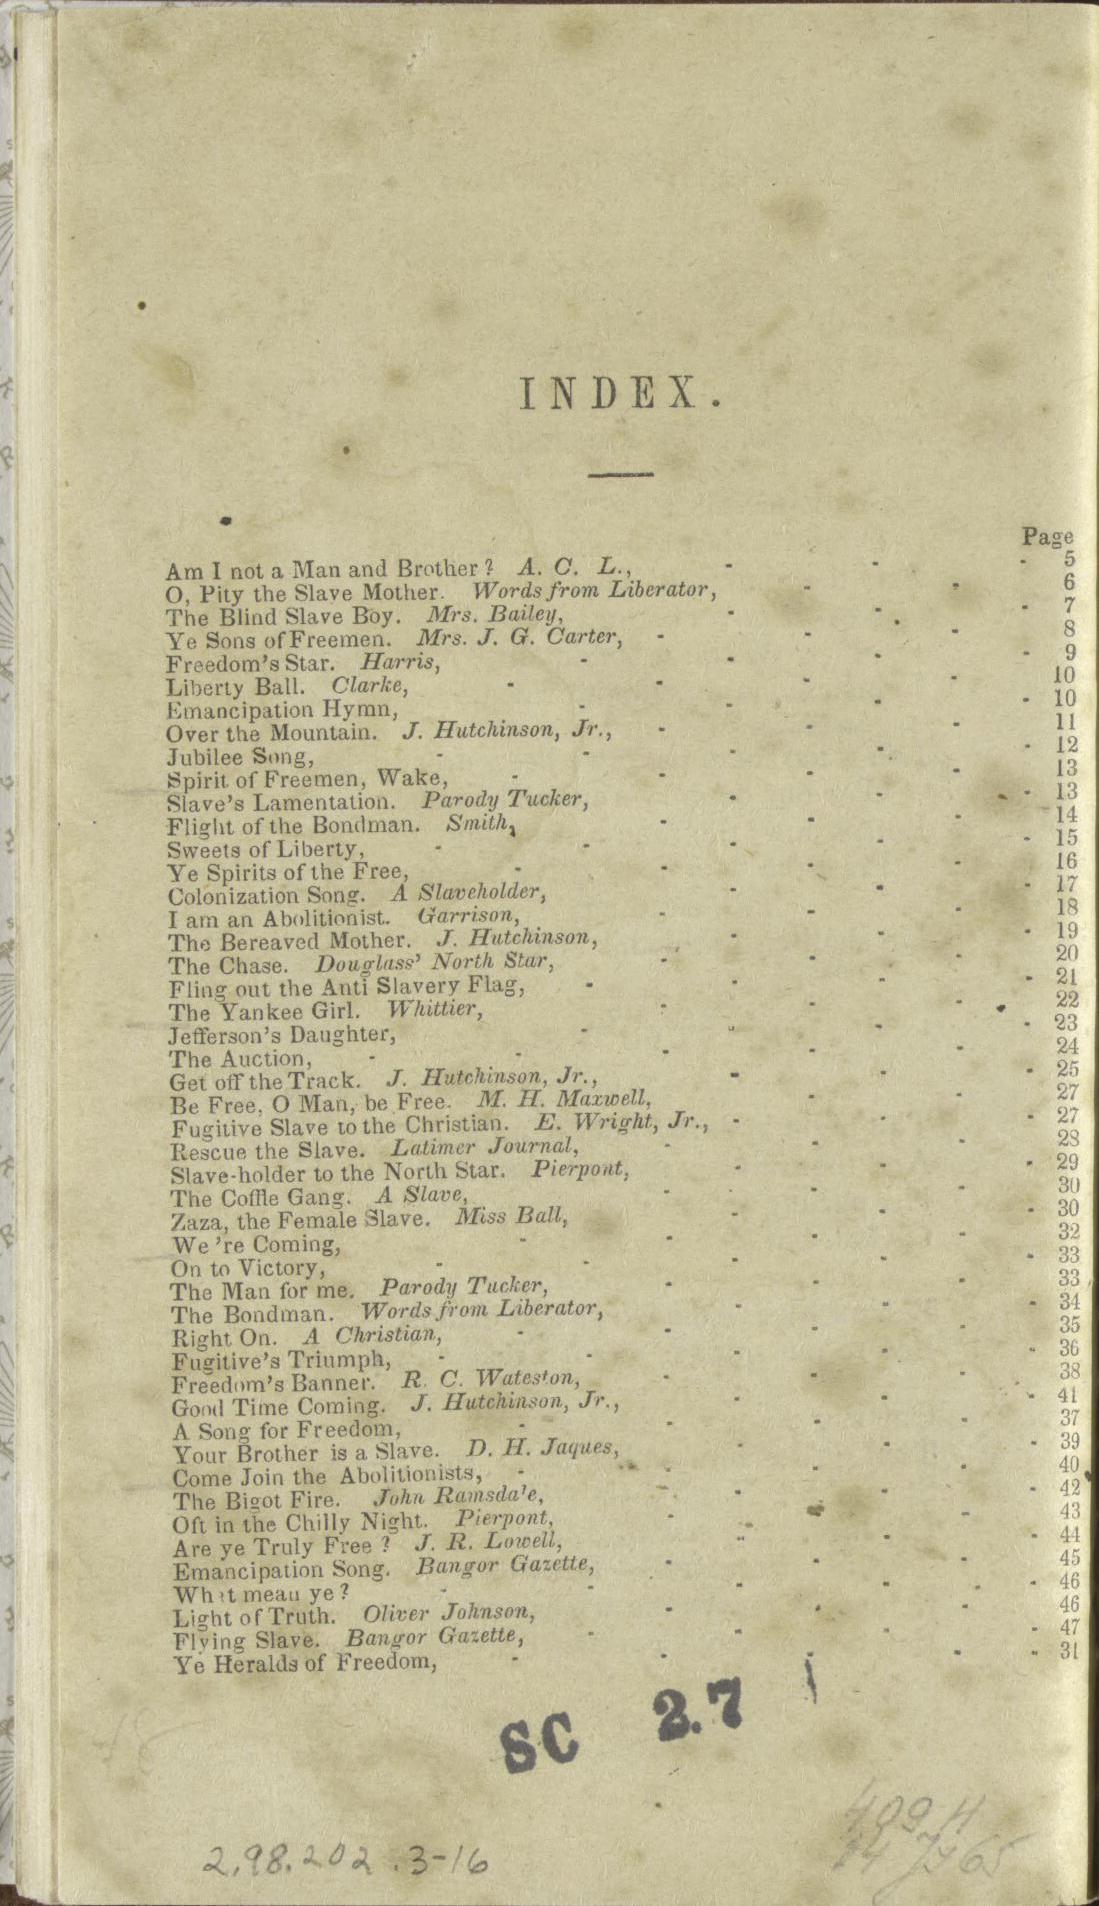 INDEX.
Page
Am I not a Man and Brother? A. C. L., - - - 5
O, Pity the Slave Mother. Words from Liberator, - - 6
The Blind Slave Boy. Mrs. Bailey, - - - 7
Ye Sons of Freemen. Mrs. J. G. Carter, - - - 8
Freedom's Star. Harris, - - - - 9
Liberty Ball. Clarke, - - - - 10
Emancipation Hymn, - - - - 10
Over the Mountain. J. Hutchinson, Jr., - - - 11
Jubilee Song, - - - - - 12
Spirit of Freemen, Wake, - - - - 13
Slave's Lamentation. Parody Tucker, - - - 13
Flight of the Bondman. Smith, - - - 14
Sweets of Liberty, - - - - - 15
Ye Spirits of the Free, - - - - 16
Colonization Song. A Slaveholder, - - - 17
I am an Abolitionist. Garrison, - - - 18
The Bereaved Mother. J. Hutchinson, - - - 19
The Chase. Douglass' North Star, - - - 20
Fling out the Anti Slavery Flag, - - - - 21
The Yankee Girl. Whittier, - - - 22
Jefferson's Daughter, - - - - 23
The Auction, - - - - - 24
Get off the Track. J. Hutchinson, Jr., - - - 25
Be Free, O Man, be Free. M. H. Maxwell, - - 27
Fugitive Slave to the Christian. E. Wright, Jr., - - - 27
Rescue the Slave. Latimer Journal, - - - 28
Slave-holder to the North Star. Pierpont, - - - 29
The Coffle Gang. A Slave, - - - 30
Zaza, the Female Slave. Miss Ball, - - - 30
We 're Coming, - - - - 32
On to Victory, - - - - - 33
The Man for me. Parody Tucker, - - - 33
The Bondman. Words from Liberator, - - - 34
Right On. A Christian, - - - - 35
Fugitive's Triumph, - - - - - 36
Freedom's Banner. R. C. Wateston, - - - 38
Good Time Coming. J. Hutchinson, Jr., - - - 41
A Song for Freedom, - - - - 37
Your Brother is a Slave. D. H. Jaques, - - - 39
Come Join the Abolitionists, - - - - 40
The Bigot Fire. John Ramsdale, - - - 42
Oft in the Chilly Night. Pierpont, - - - 43
Are ye Truly Free? J. R. Lowell, - - - 44
Emancipation Song. Bangor Gazette, - - - 45
What mean ye? - - - - - 46
Light of Truth. Oliver Johnson, - - - 46
Flying Slave. Bangor Gazette, - - - - 47
Ye Heralds of Freedom, - - - - - 31
SC 2.7
2.98.202.3-16